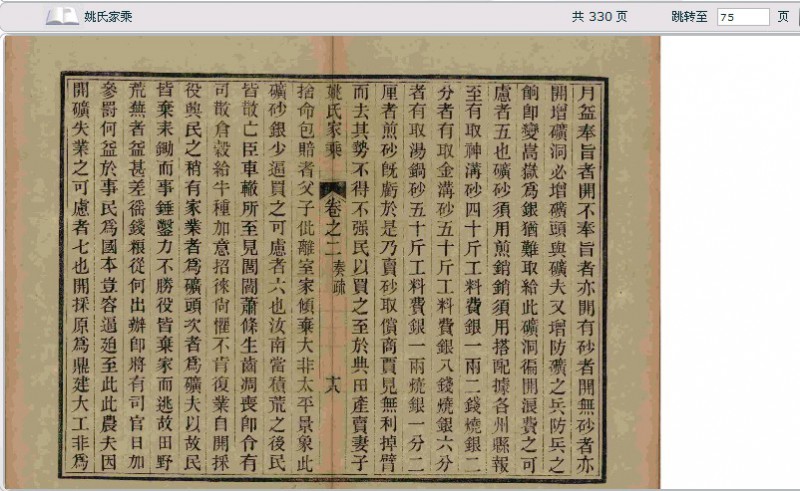 姚氏家乘
共 330 页
跳转至 75 页
月益奉旨者開不奉旨者亦開有砂者開無砂者亦
開增礦洞必增礦頭與礦夫又增防礦之兵防兵之
餉卽變嵩嶽爲銀猶難取給此礦洞徧開浪費之可
慮者五也礦砂須用煎銷銷須用搭配據各州縣報
至有取神溝砂四十斤工料費銀一兩二錢燒銀二
分者有取金溝砂五十斤工料費銀八錢燒銀六分
者有取湯鍋砂五十斤工料費銀一兩燒銀一分二
厘者煎砂旣虧於是乃賣砂取償商賈見無利掉臂
而去其勢不得不强民以買之至於典田產賣妻子
姚氏家乘 卷之二 奏疏 十八
捨命包賠者父子仳離室家傾棄大非太平景象此
礦砂銀少逼買之可慮者六也汝南當積荒之後民
皆散亡臣車轍所至見閭閻蕭條生齒凋喪卽令有
可散倉穀給牛種加意招徠尙懼不肯復業自開採
役興民之稍有家業者爲礦頭次者爲礦夫以故民
皆棄耒鋤而事錘鑿力不勝役皆棄家而逃故田野
荒蕪者益甚差徭錢糧從何出辦卽將有司官日加
參罸何益於事民爲國本豈容逼廹至此此農夫因
開礦失業之可慮者七也開採原爲鼎建大工非爲